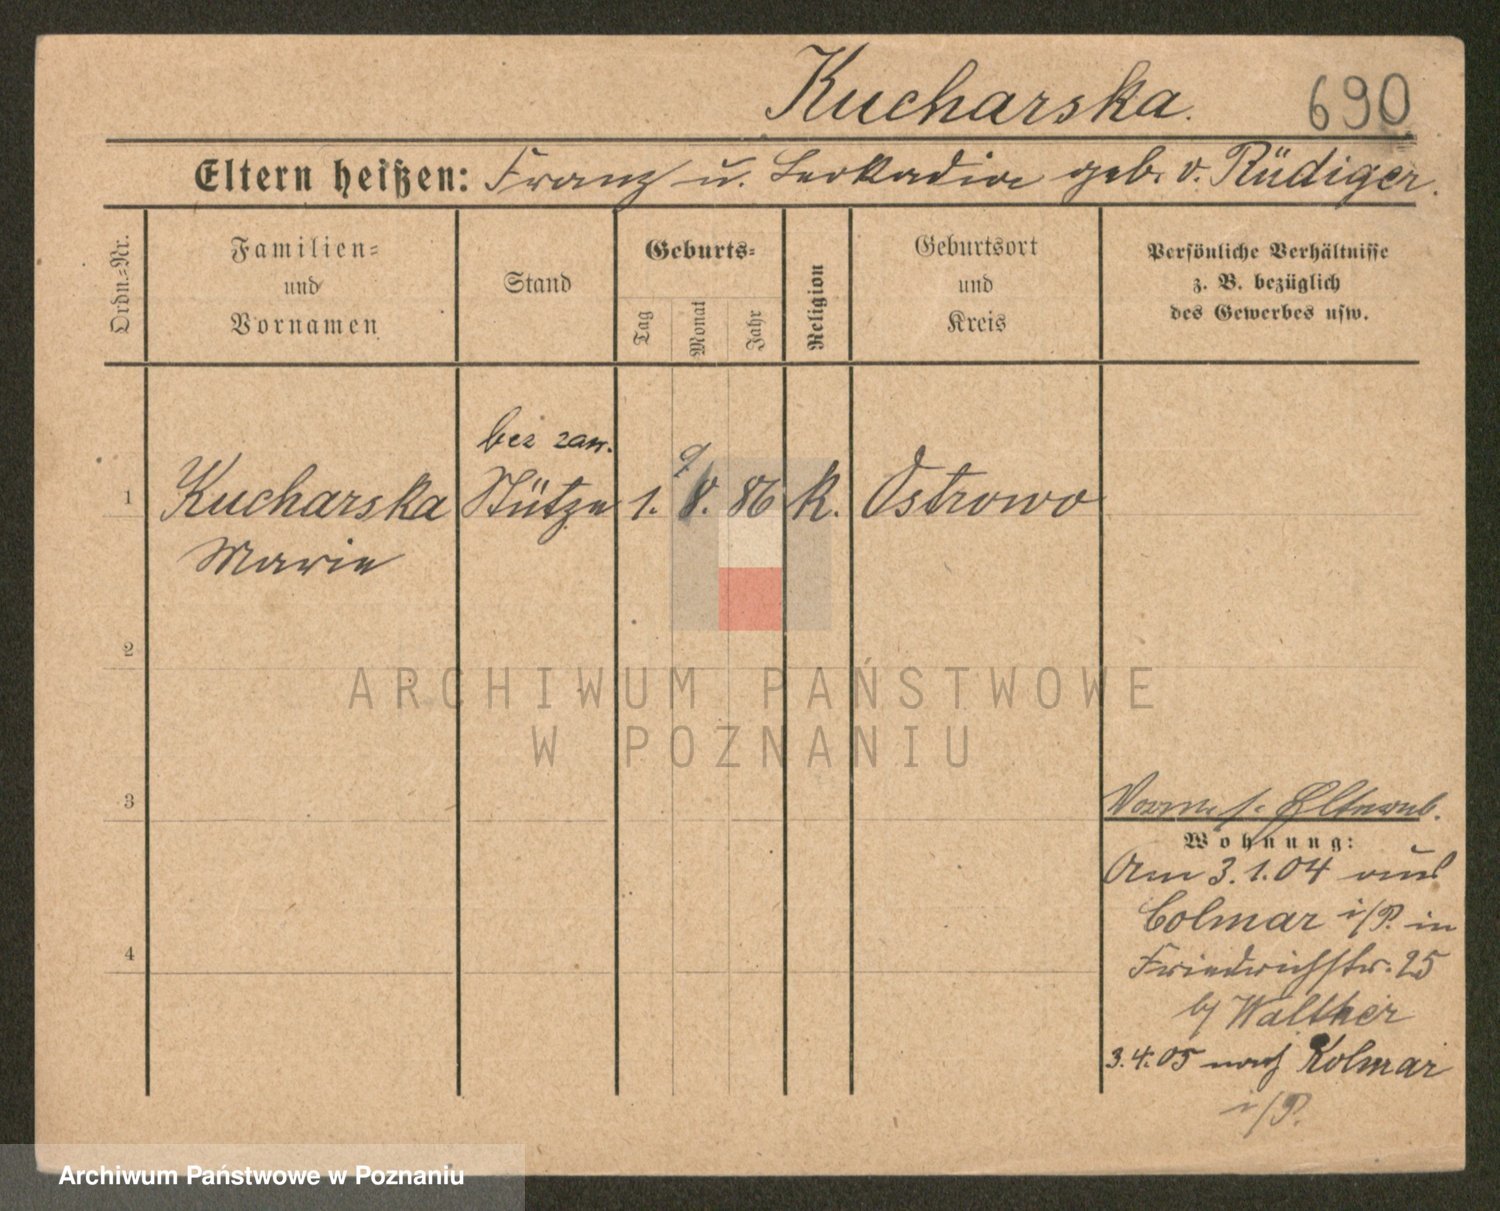 Kucharska.
690
Eltern heißen: Franz u. Leokadia geb. v. Rüdiger.
Ordn.-Nr.
Familien-
und
Vornamen
Stand
Geburts-
Tag
Monat
Jahr
Religion
Geburtsort
und
Kreis
Persönliche Verhältnisse
z. B. bezüglich
des Gewerbes usw.
bez zaw.
1
Kucharska
Stütze
1.
9
8.
86
k.
Ostrowo
Marie
2
ARCHIWUM PAŃSTWOWE
W POZNANIU
3
Wohnung:
Am 3.1.04 aus
Colmar i/P. in
4
Friedrichstr. 25
b/ Walther
3.4.05 nach Kolmar
i/P.
Archiwum Państwowe w Poznaniu